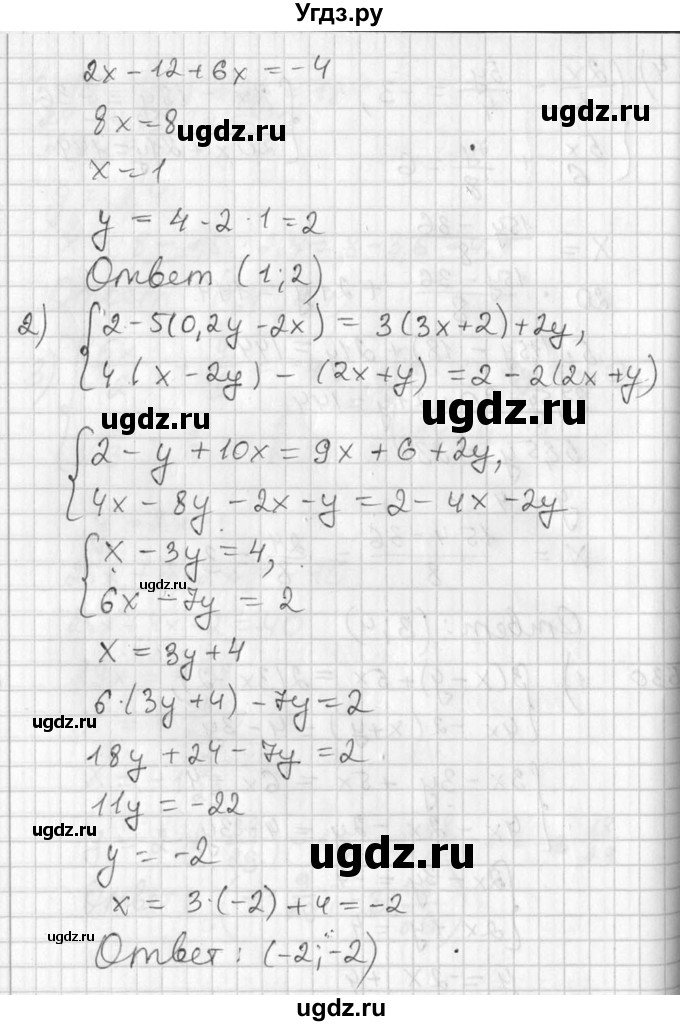 Угдз.ру
2x - 12 + 6x = -4
8x = 8
ugdz.ru
ugdz.ru
x = 1
y = 4 - 2 · 1 = 2
Ответ (1; 2)
2) { 2 - 5(0,2y - 2x) = 3(3x + 2) + 2y,
4(x - 2y) - (2x + y) = 2 - 2(2x + y)
ugdz.ru
ugdz.ru
{ 2 - y + 10x = 9x + 6 + 2y,
4x - 8y - 2x - y = 2 - 4x - 2y
{ x - 3y = 4,
ugdz.ru
6x - 7y = 2
x = 3y + 4
6·(3y + 4) - 7y = 2
ugdz.ru
18y + 24 - 7y = 2
11y = -22
ugdz.ru
y = -2
ugdz.ru
x = 3·(-2) + 4 = -2
ugdz.ru
Ответ: (-2; -2)
ugdz.ru